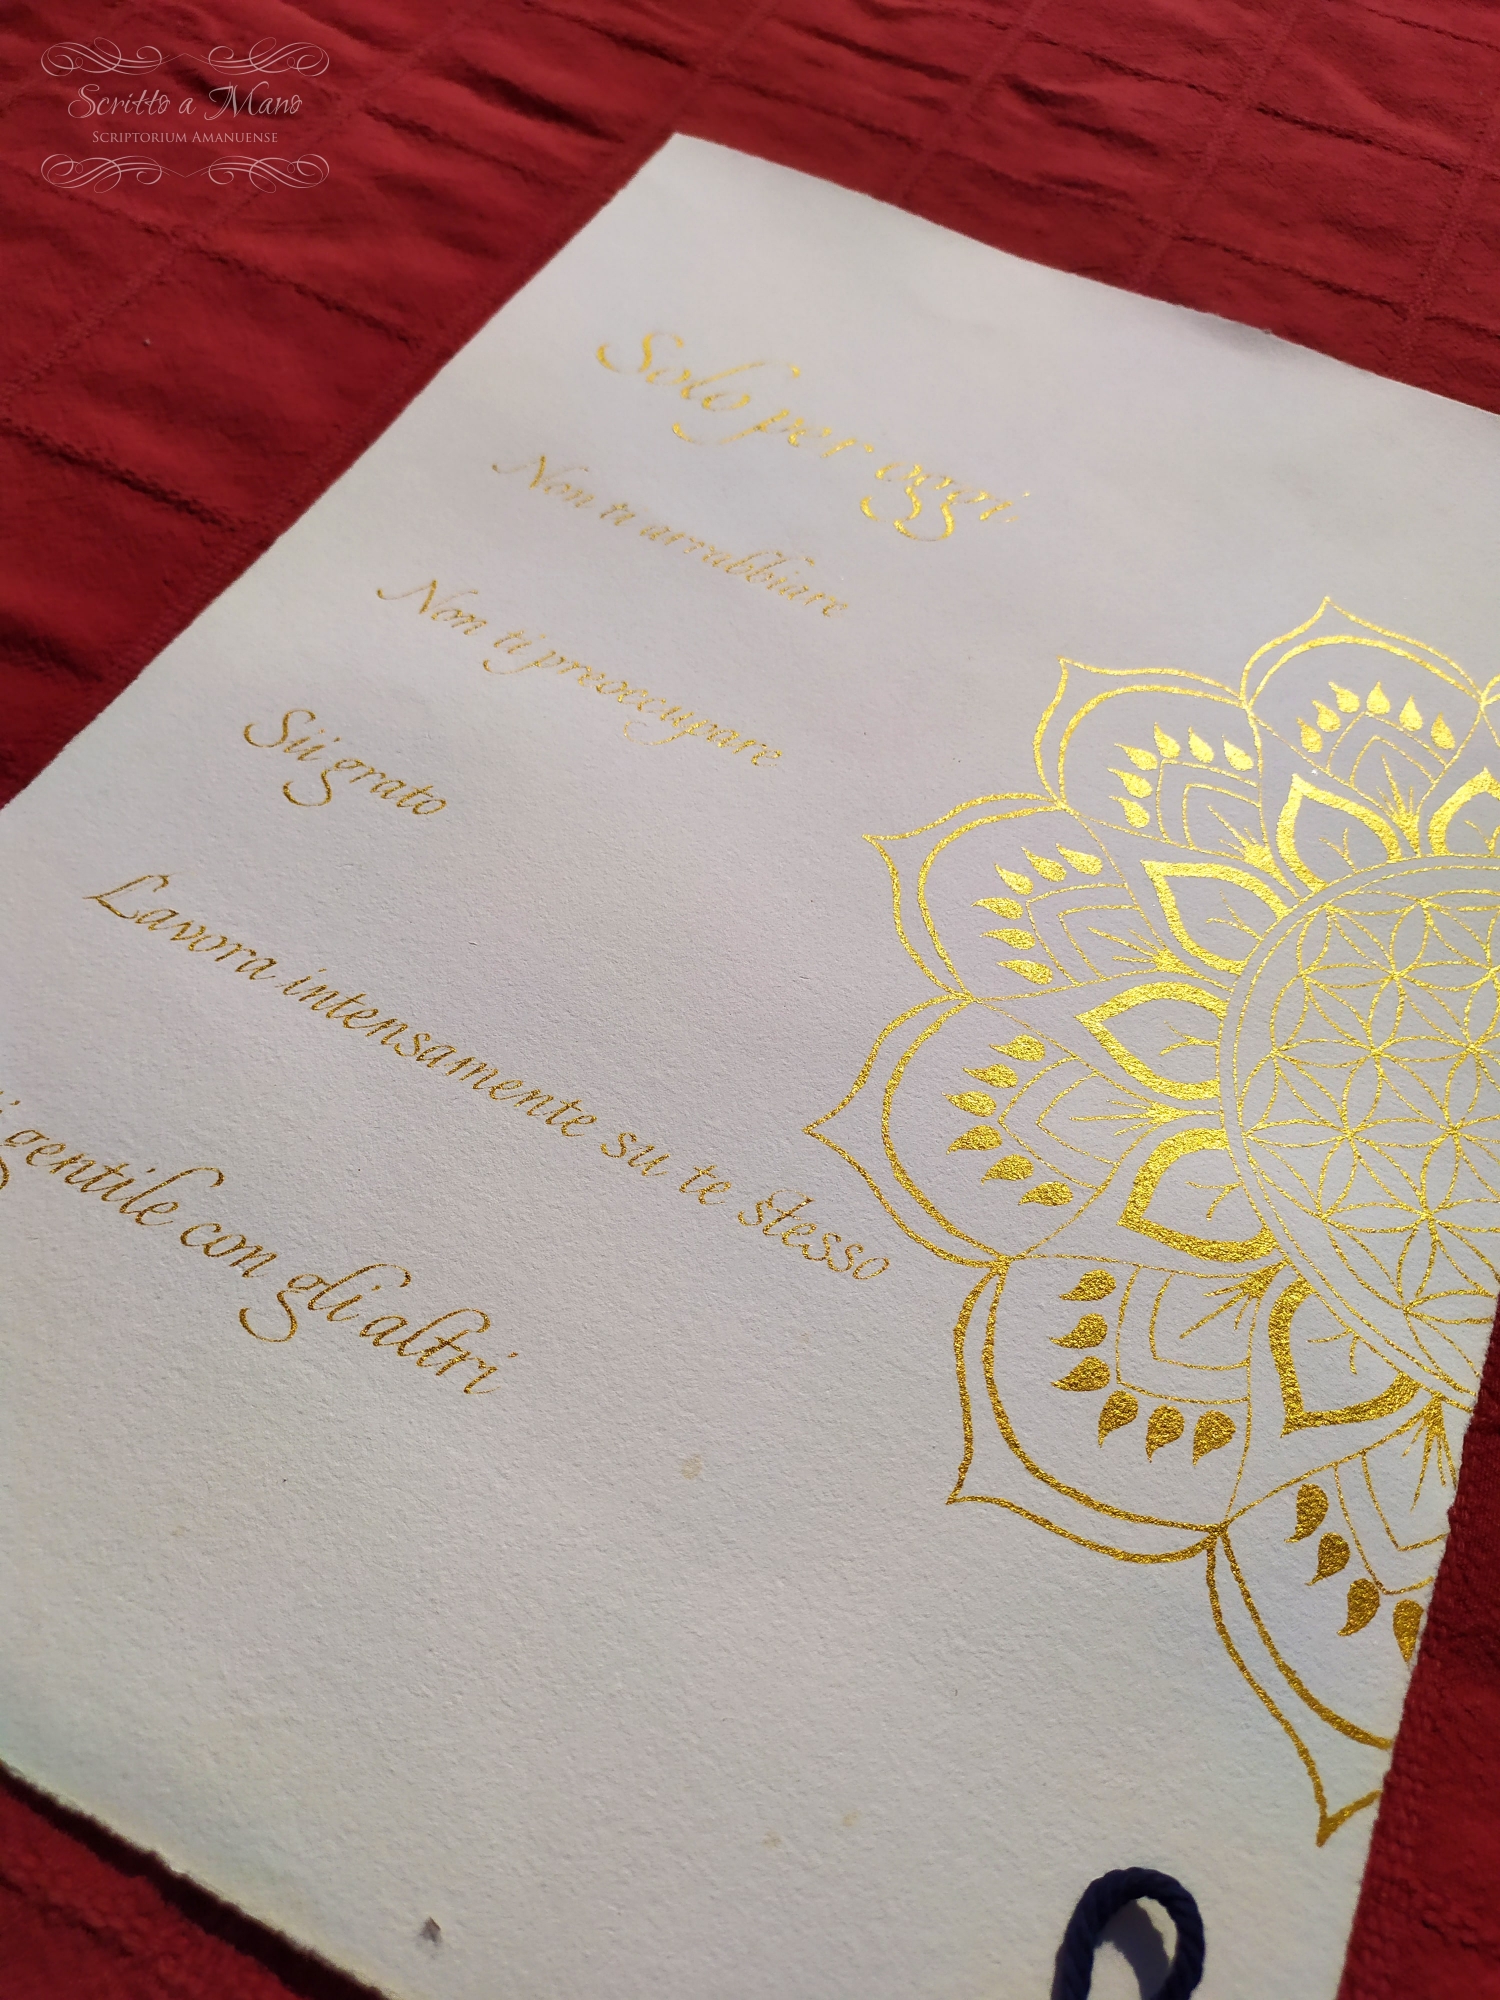 Scritto a Mano
Scriptorium Amanuense
Solo per oggi:
Non ti arrabbiare
Non ti preoccupare
Sii grato
Lavora intensamente su te stesso
gentile con gli altri